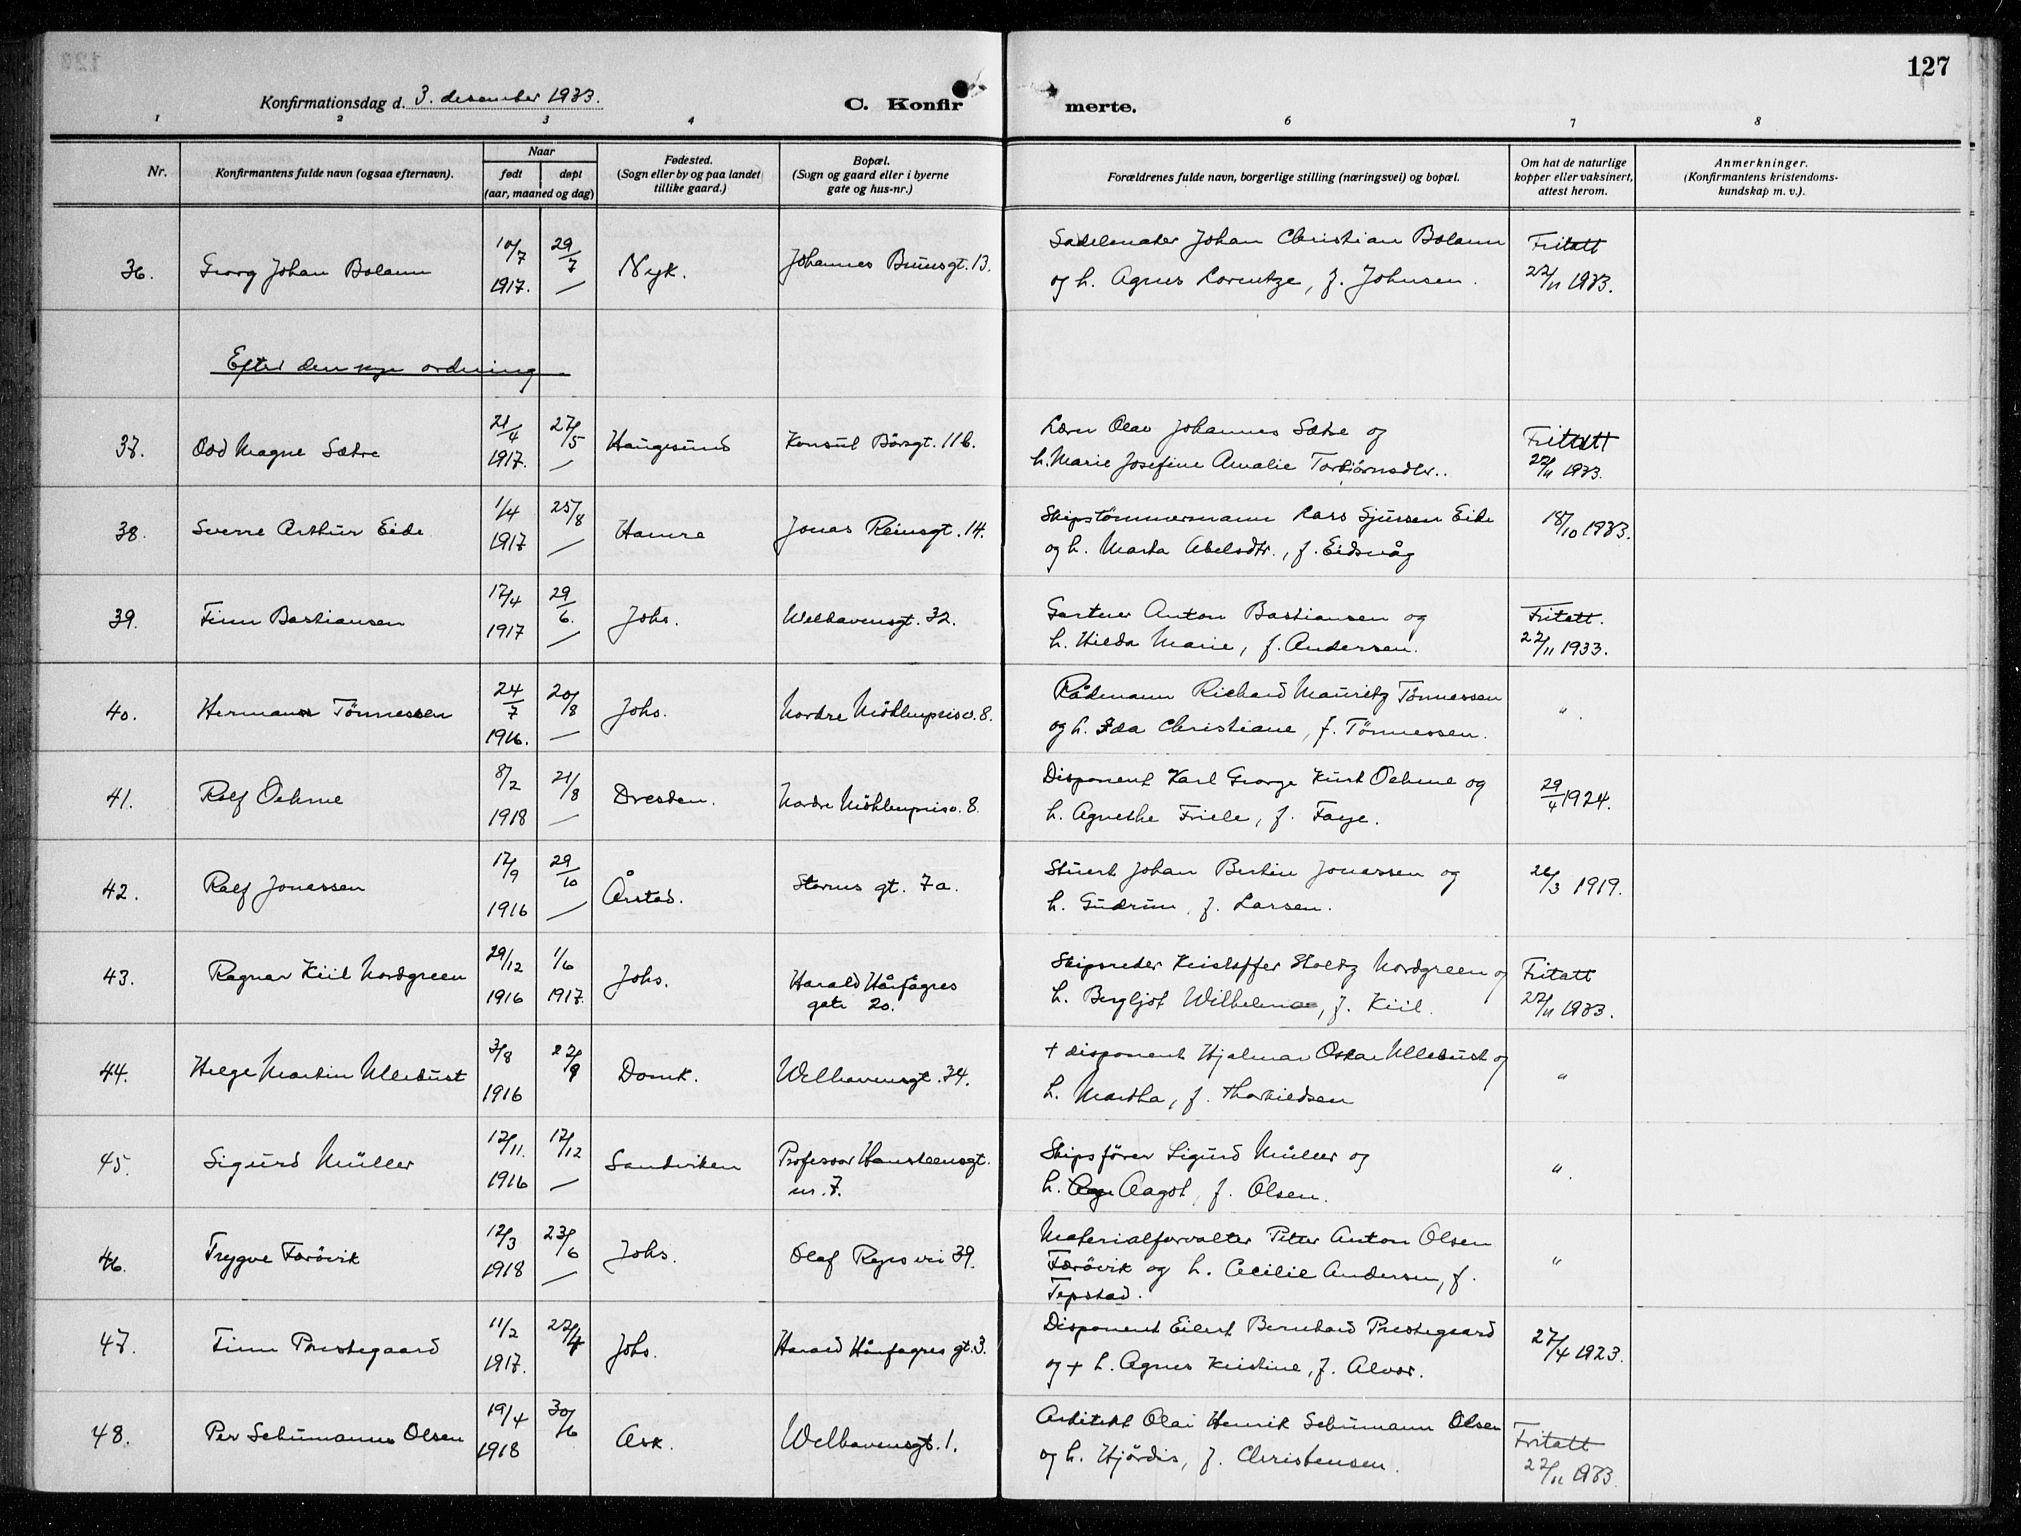 127
Konfirmationsdag d. 3. desember 1933.
C. Konfirmerte.
1 2 3 4 5 6 7 8
Nr.
Konfirmantens fulde navn (ogsaa efternavn).
Naar
født
døpt
(aar, maaned og dag)
Fødested.
(Sogn eller by og paa landet
tillike gaard.)
Bopæl.
(Sogn og gaard eller i byerne
gate og hus-nr.)
Forældrenes fulde navn, borgerlige stilling (næringsvei) og bopæl.
Om hat de naturlige
kopper eller vaksinert,
attest herom.
Anmerkninger.
(Konfirmantens kristendoms-
kundskap m. v.).
36. Georg Johan Bolann 10/7 1917. 29/7 — Nyk. Johannes Brunsgt. 13.
Sadelmaker Johan Christian Bolann
og h. Agnes Lorentze, f. Johnsen.
Fritatt
22/11 1933.
Efter den nye ordning.
37. Odd Magne Sætre 21/4 1917. 27/5 — Haugesund Konsul Børsgt. 11b.
Lærer Olav Johannes Sætre og
h. Marie Josefine Amalie Torbjørnsdtr.
Fritatt
22/11 1933.
38. Sverre Arthur Eide 1/4 1917 25/8 — Hamre Jonas Reinsgt. 14.
Skipstømmermann Lars Sjursen Eide
og h. Marta Abelsdtr., f. Eidsvåg
18/10 1933.
39. Finn Bastiansen 17/4 1917 29/6. — Johs. Welhavensgt. 32.
Gartner Anton Bastiansen og
h. Hilda Marie, f. Andersen.
Fritatt.
22/11 1933.
40. Hermann Tönnessen 24/7 1916. 20/8 — Johs. Nordre Möhlenprisv. 8.
Rådmann Richard Mauritz Tönnessen
og h. Ida Christiane, f. Tönnessen.
" .
41. Rolf Oehme 8/2 1918 21/8 — Dresden. Nordre Möhlenprisv. 8.
Disponent Karl George Kurt Oehme og
h. Agnethe Friele, f. Faye.
29/4 1924.
42. Rolf Jonassen 17/9 1916 29/10 — Årstad. Storms gt. 7a.
Stuert Johan Bertin Jonassen og
h. Gudrun, f. Larsen.
26/3 1919.
43. Ragnar Kiil Nordgreen 29/12 1916 1/6 1917. Johs. Harald Hårfagres
gate 20.
Skipsreder Kristoffer Stoltz Nordgreen og
h. Bergljot Wilhelmine, f. Kiil.
Fritatt
22/11 1933.
44. Helge Martin Ullebust 3/8 1916 22/9 Domk. Welhavensgt. 34.
+ disponent Hjalmar Oskar Ullebust og
h. Martha, f. Thorkildsen
"
45. Sigurd Müller 12/11. 1916 17/12 — Sandviken Professor Hansteensgt.
nr. 7.
Skipsfører Sigurd Müller og
h. Aagot, f. Olsen.
" .
46. Trygve Færövik 12/3 1918 23/6 — Johs. Olaf Ryes vei 39.
Materialforvalter Peter Anton Olsen
Færövik og h. Cecilie Andersen, f.
Tepstad.
"
47. Finn Prestegaard 11/2 1917. 22/4 Johs. Harald Hårfagres gt. 3.
Disponent Eilert Bernhard Prestegaard
og + h. Agnes Kristine, f. Alver.
27/4 1923.
48. Per Schumann Olsen 19/4 1918 30/6 Ask. Welhavensgt. 1.
Arkitekt Olai Henrik Schumann Olsen
og h. Hjördis, f. Christensen.
Fritatt
22/11 1933.